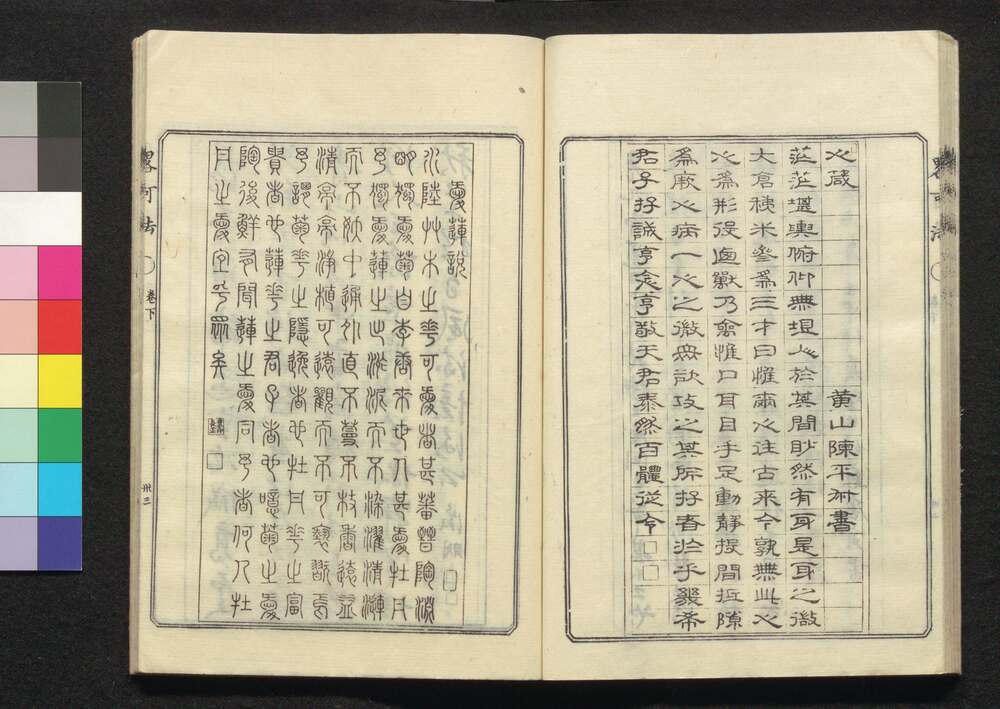 心箴 黄山陳平書
茫茫堪輿俯仰無垠人於其間眇然有身是身之微
大倉稊米參爲三才曰惟爾心往古來今孰無此心
心爲形役迺獸乃禽惟口耳目手足動靜投間抵隙
爲厥心病一心之微衆欲攻之其所存者於乎幾希
君子存誠克念克敬天君泰然百體從令□□
愛蓮説 □
水陸艸木之華可愛者甚蕃晉陶淵
明獨愛菊自李唐來世人甚愛牡丹
予獨愛蓮之出淤泥而不染濯清漣
而不妖中通外直不蔓不枝香遠益
清亭亭淨植可遠觀而不可褻翫焉
予謂菊華之隱逸者也牡丹華之富
貴者也蓮華之君子者也噫菊之愛
陶後鮮有聞蓮之愛同予者何人牡
丹之愛宜乎眾矣 □
畧可法 卷下 卅三